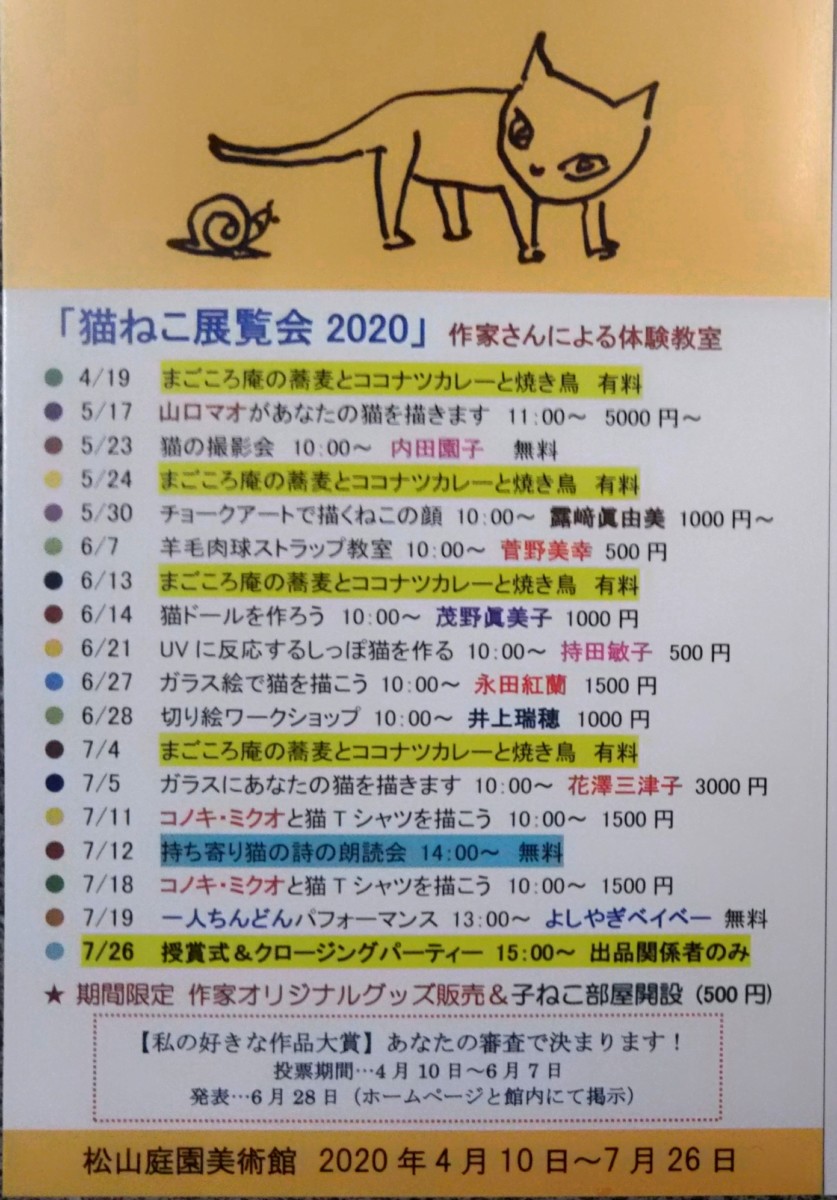 「猫ねこ展覧会 2020」 作家さんによる体験教室
● 4/19 まごころ庵の蕎麦とココナツカレーと焼き鳥 有料
● 5/17 山口マオがあなたの猫を描きます 11:00～ 5000円～
● 5/23 猫の撮影会 10:00～ 内田園子 無料
● 5/24 まごころ庵の蕎麦とココナツカレーと焼き鳥 有料
● 5/30 チョークアートで描くねこの顔 10:00～ 露﨑眞由美 1000円～
● 6/7 羊毛肉球ストラップ教室 10:00～ 菅野美幸 500円
● 6/13 まごころ庵の蕎麦とココナツカレーと焼き鳥 有料
● 6/14 猫ドールを作ろう 10:00～ 茂野眞美子 1000円
● 6/21 UVに反応するしっぽ猫を作る 10:00～ 持田敏子 500円
● 6/27 ガラス絵で猫を描こう 10:00～ 永田紅蘭 1500円
● 6/28 切り絵ワークショップ 10:00～ 井上瑞穂 1000円
● 7/4 まごころ庵の蕎麦とココナツカレーと焼き鳥 有料
● 7/5 ガラスにあなたの猫を描きます 10:00～ 花澤三津子 3000円
● 7/11 コノキ・ミクオと猫Tシャツを描こう 10:00～ 1500円
● 7/12 持ち寄り猫の詩の朗読会 14:00～ 無料
● 7/18 コノキ・ミクオと猫Tシャツを描こう 10:00～ 1500円
● 7/19 一人ちんどんパフォーマンス 13:00～ よしやぎベイベー 無料
● 7/26 授賞式＆クロージングパーティー 15:00～ 出品関係者のみ
★ 期間限定 作家オリジナルグッズ販売＆子ねこ部屋開設（500円）
【私の好きな作品大賞】あなたの審査で決まります！
投票期間…4月10日～6月7日
発表…6月28日（ホームページと館内にて掲示）
松山庭園美術館 2020年4月10日～7月26日